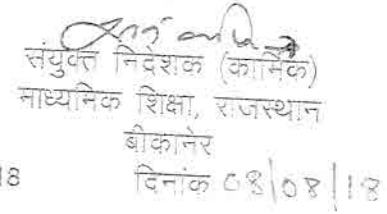 संयुक्त निदेशक (कार्मिक)
माध्यमिक शिक्षा, राजस्थान
बीकानेर
18 दिनांक 08/08/18